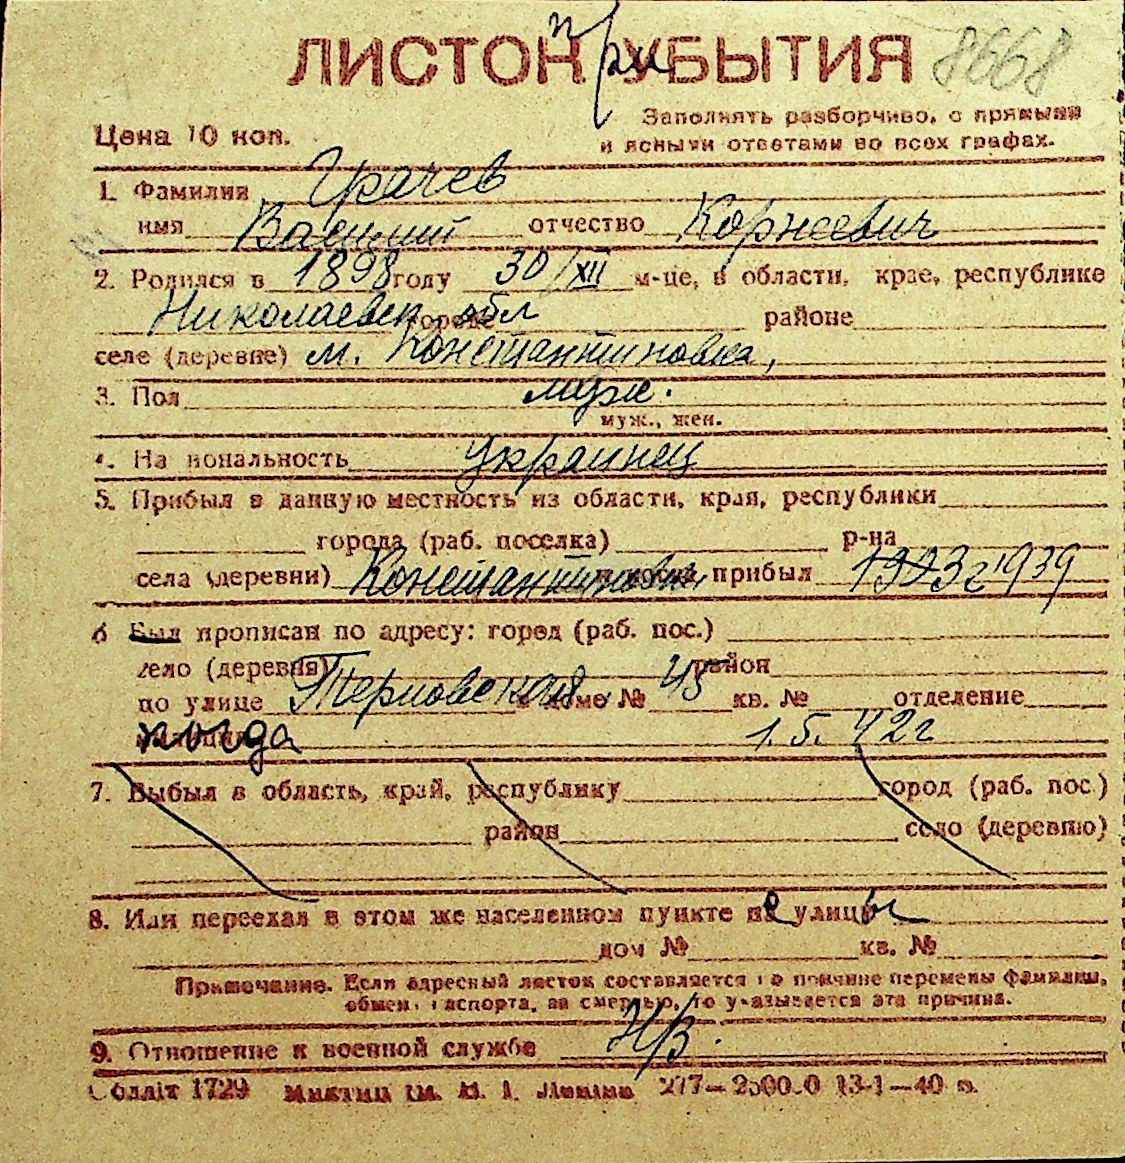 ЛИСТОК при УБЫТИЯ 8668
Цена 10 коп.
Заполнять разборчиво, с прямыми
и ясными ответами во всех графах.
1. Фамилия Грачев
имя Василий отчество Корнеевич
2. Родился в 1898 году 30/XII м-це, в области, крае, республике
Николаевск. обл городе районе
селе (деревне) м. Константиновка,
3. Пол муж.
муж., жен.
4. На иональность украинец
5. Прибыл в данную местность из области, края, республики
города (раб. поселка) р-на
села (деревни) Константиновки прибыл 1923г 1939
6 Был прописан по адресу: город (раб. пос.)
село (деревня) район
по улице Терновская доме № 45 кв. № отделение
когда 1.5.42г
7. Выбыл в область, край, республику город (раб. пос.)
район село (деревню)
8. Или переехал в этом же населенном пункте на улицы
дом № кв. №
Примечание. Если адресный листок составляется по причине перемены фамилии,
обмен. паспорта, за смертью, то указывается эта причина.
9. Отношение к военной службе Н/В.
Облліт 1729 277— 13-1—40 р.